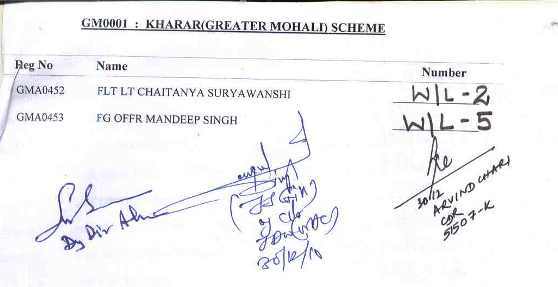 GM0001 : KHARAR(GREATER MOHALI) SCHEME
Reg No Name Number
GMA0452 FLT LT CHAITANYA SURYAWANSHI W/L-2
GMA0453 FG OFFR MANDEEP SINGH W/L-5
Dy Dir Adm
30/12/10
30/12
ARVIND CHARI
CDR
51507-K